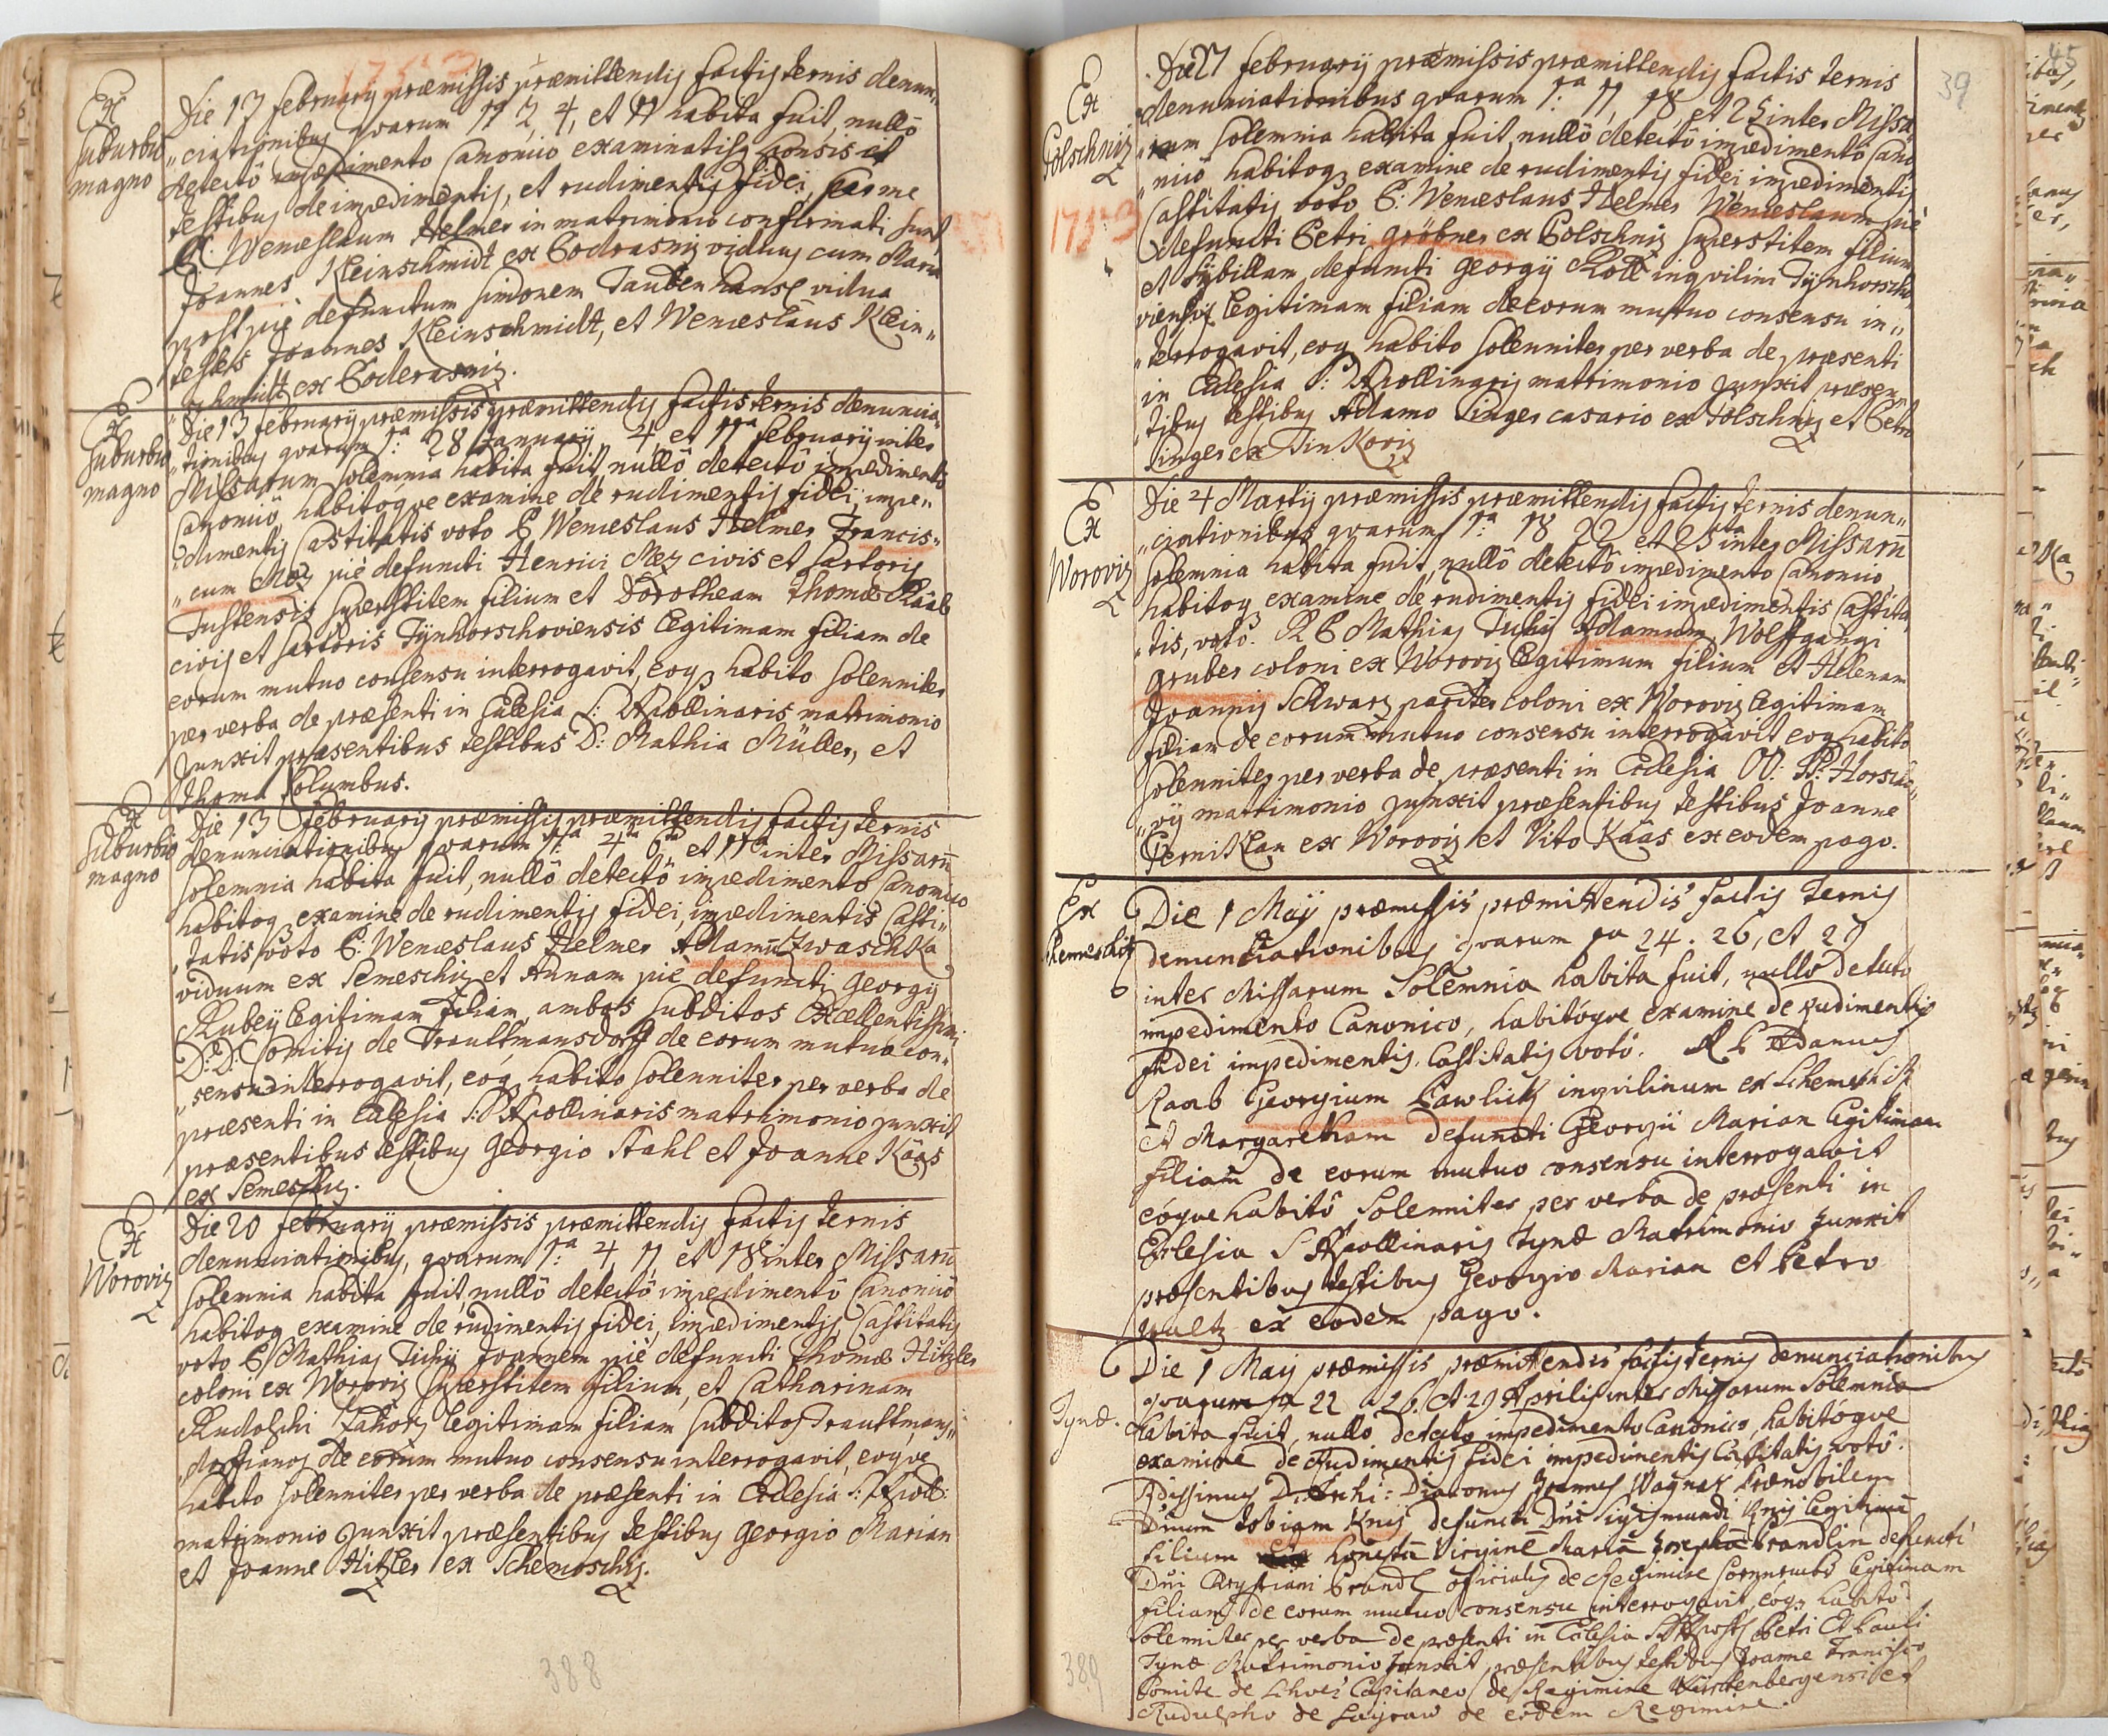 1753
Ex
Suburbio
magno
Die 13 February præmissis præmittendis factis ternis denun„
„ciationibus quarum 1ª 2 4, et 11 habita fuit, nullô
detectô impedimento Canonico examinatisq sponsis et
testibus de impedimentis, et rudimentis fidei, per me
P. Wenceslaum Helmer in matrimonio confirmati sunt
Joannes Kleinschmidt ex Podrasniz viduus cum Maria
post piè defunctum Simonem Taubenhansl vidua
testes Joannes Kleinschmidt, et Wenceslaus Klein„
„schmidt ex Poderasniz.
Ex
Suburbio
magno
Die 13 february præmissis præmittendis factis ternis denuncia„
„tionibus quarum 1.ª 28 January, 4, et 11ª february inter
Missarum solemnia habita fuit, nullô detectô impedimentô
Canonicô, habitoque examine de rudimentis fidei, impe„
„dimentis Castitatis voto P Wenceslaus Helmer Francis„
„cum Mez piè defuncti Henrici Mez civis et Sartoris
Tustensis superstitem filium et Dorotheam Thomæ Raab
civis et Sartoris Tÿnhorschoviensis legitimam filiam de
eorum mutuo consensu interrogavit, eoq habito solenniter
per verba de præsenti in Ecclesia S: Apollinaris matrimonio
junxit præsentibus testibus D: Mathia Müller, et
Thoma Kolumbus.
Ex
Suburbio
magno
Die 13 february præmissis præmittendis factis ternis
denunciationibus quarum 1.ª 4ta 6ta et 11 inter Missarū
solemnia habita fuit, nullô detectô impedimento Canonico
habitoq examine de rudimentis fidei, impedimentis Casti„
„tatis voto P: Wenceslaus Helmer Adamū Zwaschka
viduum ex Semeschiz et Annam piè defuncti Georgÿ
Rubeÿ legitimam filiam, ambos subditos Excellentissimi
D: D: Comitis de Trauttmansdorff de eorum mutuo con„
„sensu interrogavit, eoq habito solenniter per verba de
præsenti in Ecclesia S: Apollinaris matrimonio junxit
præsentibus testibus Georgio Stahl et Joanne Kääs
ex Semeschiz.
Ex
Woroviz
Die 20 february præmissis præmittendis factis ternis
denunciationibus, quarum 1.ª 4, 11, et 18 inter Missarū
solemnia habita fuit, nullô detectô impedimentô Canonicô
habitoq examine de rudimentis fidei, impedimentis Castitatis
voto P Mathias Tichÿ Joannem piè defuncti Thomæ Hitzler
coloni ex Woroviz superstitem filium, et Catharinam
Rudolphi Zahorz legitimam filiam subditos Trauttmans„
„dorffianos de eorum mutuo consensu interrogavit, eoque
habito solenniter per verba de præsenti in Ecclesia S: Apoll:
matrimonio junxit præsentibus testibus Georgio Marian
et Joanne Hitzler ex Schemoschiz.
388
39
1753
Ex
Polschniz
Die 27 february præmissis præmittendis factis ternis
denunciationibus quarum 1.ª 11, 18, et 25 inter Missa„
„rum solemnia habita fuit, nullô detectô impedimentô Cano„
„nicô habitoq examine de rudimentis fidei impedimentis
Castitatis voto P: Wenceslaus Helmer Wenceslaum piè
defuncti Petri gröbner ex Polschniz superstitem filium
et Sybillam, defuncti Georgÿ Roll inquilini Tÿnhorscho„
viensis legitimam filiam de eorum mutuo consensu in„
„terrogavit, eoq habito solenniter per verba de præsenti
in Ecclesia S: Apollinaris matrimonio junxit præsen„
„tibus testibus Adamo Singer casario ex Polschniz et Petro
Singer ex Sinkoviz
Ex
Woroviz
Die 4 Martÿ præmissis præmittendis factis ternis denun„
„ciationibus quarum 1.ª 18 22 et 25ta inter Missarū
solemnia habita fuit, nullô detectô impedimento Canonico,
habitoq examine de rudimentis fidei impedimentis Castita„
„tis, votô. R P Mathias Tichÿ Adamum, Wolffgangi
gruber coloni ex Woroviz legitimum filium et Helenam
Joannis Schwarz pariter coloni ex Woroviz legitimam
filiam de eorum mutuo consensu interrogavit eoq habito
solenniter per verba de præsenti in Ecclesia OO: SS: Horscho„
„vÿ matrimonio junxit præsentibus testibus Joanne
Perniklau ex Woroviz et Vito Kääs ex eodem pago.
Ex
Schemeschiz
Die 1 Maÿ præmissis præmittendis factis ternis
denunciationibus quarum 1ma 24. 26, et 29
inter Missarum Solemnia habita fuit, nullo detecto
impedimento Canonico, habitóque examine de rudimentis
fidei impedimentis, Castitatis votô. R P Adamus
Raab Georgium Pawlick inquilinum ex Schemeschitz
et Margaretham defuncti Georgii Marian legitimam
filiam de eorum mutuo consensu interrogavit
eóque habitô Solenniter per verba de præsenti in
Ecclesia S Apollinaris Tynæ Matrimonio junxit
præsentibus testibus Georgio Marian et Petro
ex eodem pago.
Tynæ.
Die 1 Maij præmissis præmittendis factis ternis denunciationibus
quarum 1ma 22 26. et 29 Aprilis inter Missarum Solemnia
habita fuit, nullô detecto impedimento Canonico, habitóque
examine de rudimentis fidei impedimentis Castitatis votô.
Rdissimus D. Archi: Diaconus Joannes Wagner Prænobilem
Dnum Tobiam Knis defuncti Dni Sigismundi Knis legitimū
filium honestā Virginē Mariā Josephā Brandlin defuncti
Dni Chrystiani Brandl officialis de Regimine legitimam
filiam de eorum mutuo consensu interrogavit, eoq habitô.
Solenniter per verba de præsenti in Ecclesia SS Apost: Petri Et Pauli
Tynæ Matrimonio junxit, præsentibus testibus Joanne Francisco
Comite de Capitaneo de Regimine et
Rudulpho de de eodem Regimine.
389
45